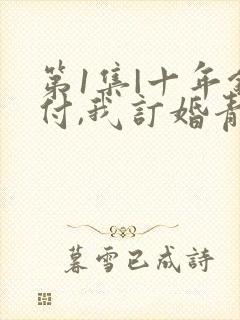 第1集|十年
付,我訂婚青
暮雪已成詩